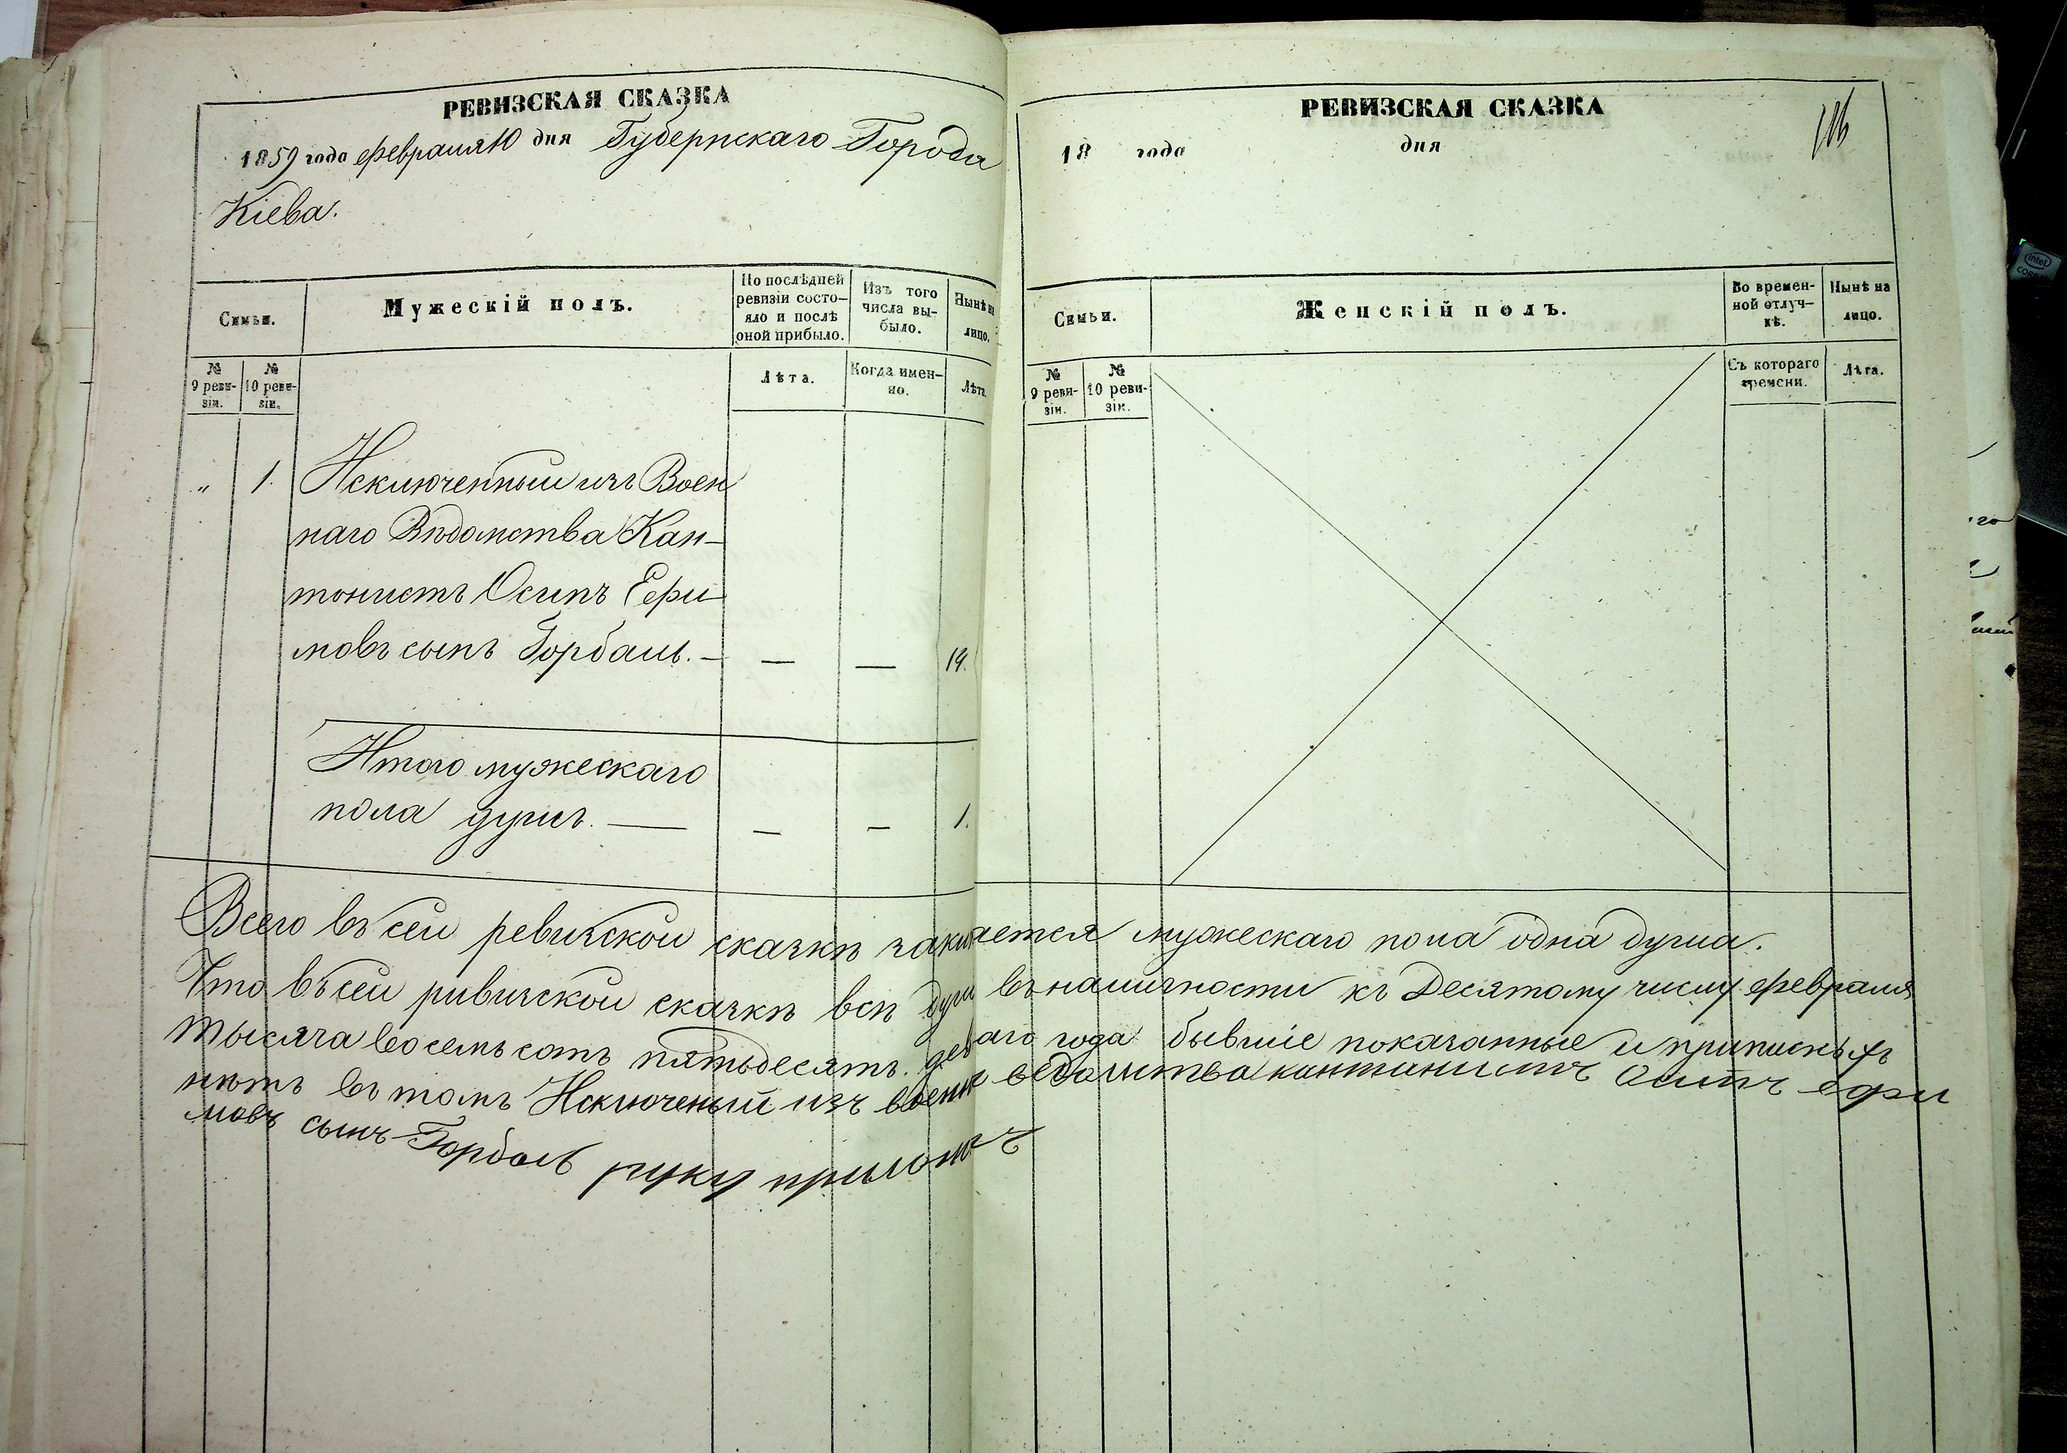 РЕВИЗСКАЯ СКАЗКА
1859 года февраля 10 дня Губернскаго Города
Кіева.
Семьи.
Мужескій полъ.
По послѣдней ревизіи состояло и послѣ оной прибыло.
Изъ того числа выбыло.
Нынѣ на лицо.
№ 9 ревизіи.
№ 10 ревизіи.
Лѣта.
Когда именно.
Лѣта.
„ 1. Исключенный изъ Воен
наго Вѣдомства Кан-
тонистъ Осипъ Ефи-
мовъ сынъ Горбаль. — — — 19.
Итого мужескаго
пола душъ. — — — 1.
РЕВИЗСКАЯ СКАЗКА
18 года дня
Семьи.
Женскій полъ.
Во временной отлучкѣ.
Нынѣ на лицо.
№ 9 ревизіи.
№ 10 ревизіи.
Съ котораго времени.
Лѣта.
Всего въ сей ревизской сказкѣ мужескаго пола одна душа.
Что въ сей ривизской сказкѣ всѣ души въ наличности къ Десятому числу февраля
тысяча восемь сотъ пятьдесятъ года бывшіе показанные и
нѣтъ въ томъ Исключеный изъ ведомства кантонистъ Осипъ ефи
мовъ сынъ Горбаль руку приложилъ